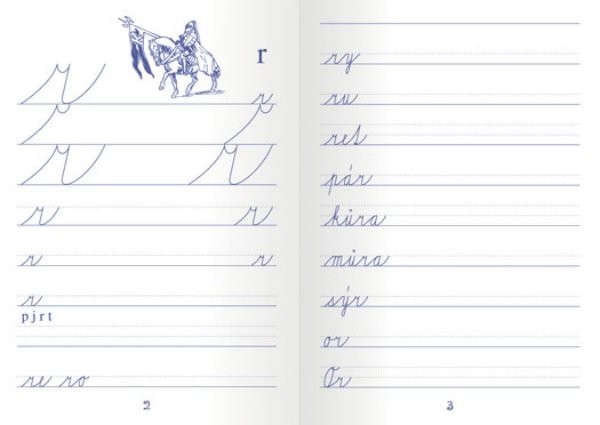 r
r r
r r
r r
r r
r r
r
p j r t
re ro
2
ry
ru
ret
pár
kůra
můra
sýr
or
Or
3